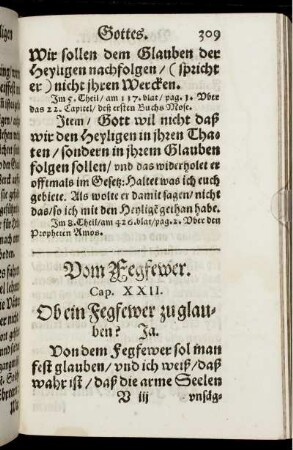 Gottes. 309
Wir sollen dem Glauben der
Heyligen nachfolgen / (spricht
er) nicht jhren Wercken.
Im 5. Theil / am 117. blat / pag. 1. Vber
das 22. Capitel / deß ersten Buchs Mose.
Item / Gott wil nicht daß
wir den Heyligen in jhren Tha-
ten / sondern in jhrem Glauben
folgen sollen / vnd das widerholet er
offtmals im Gesetz: Haltet was ich euch
gebiete. Als wolte er damit sagen / nicht
das / so ich mit den Heyligē gethan habe.
Im 8. Theil / am 426. blat / pag. 2. Vber den
Propheten Amos.
Vom Fegfewer.
Cap. XXII.
Ob ein Fegfewer zu glau-
ben? Ja.
Von dem Fegfewer sol man
fest glauben / vnd ich weiß / daß
wahr ist / daß die arme Seelen
V iij vnsäg-